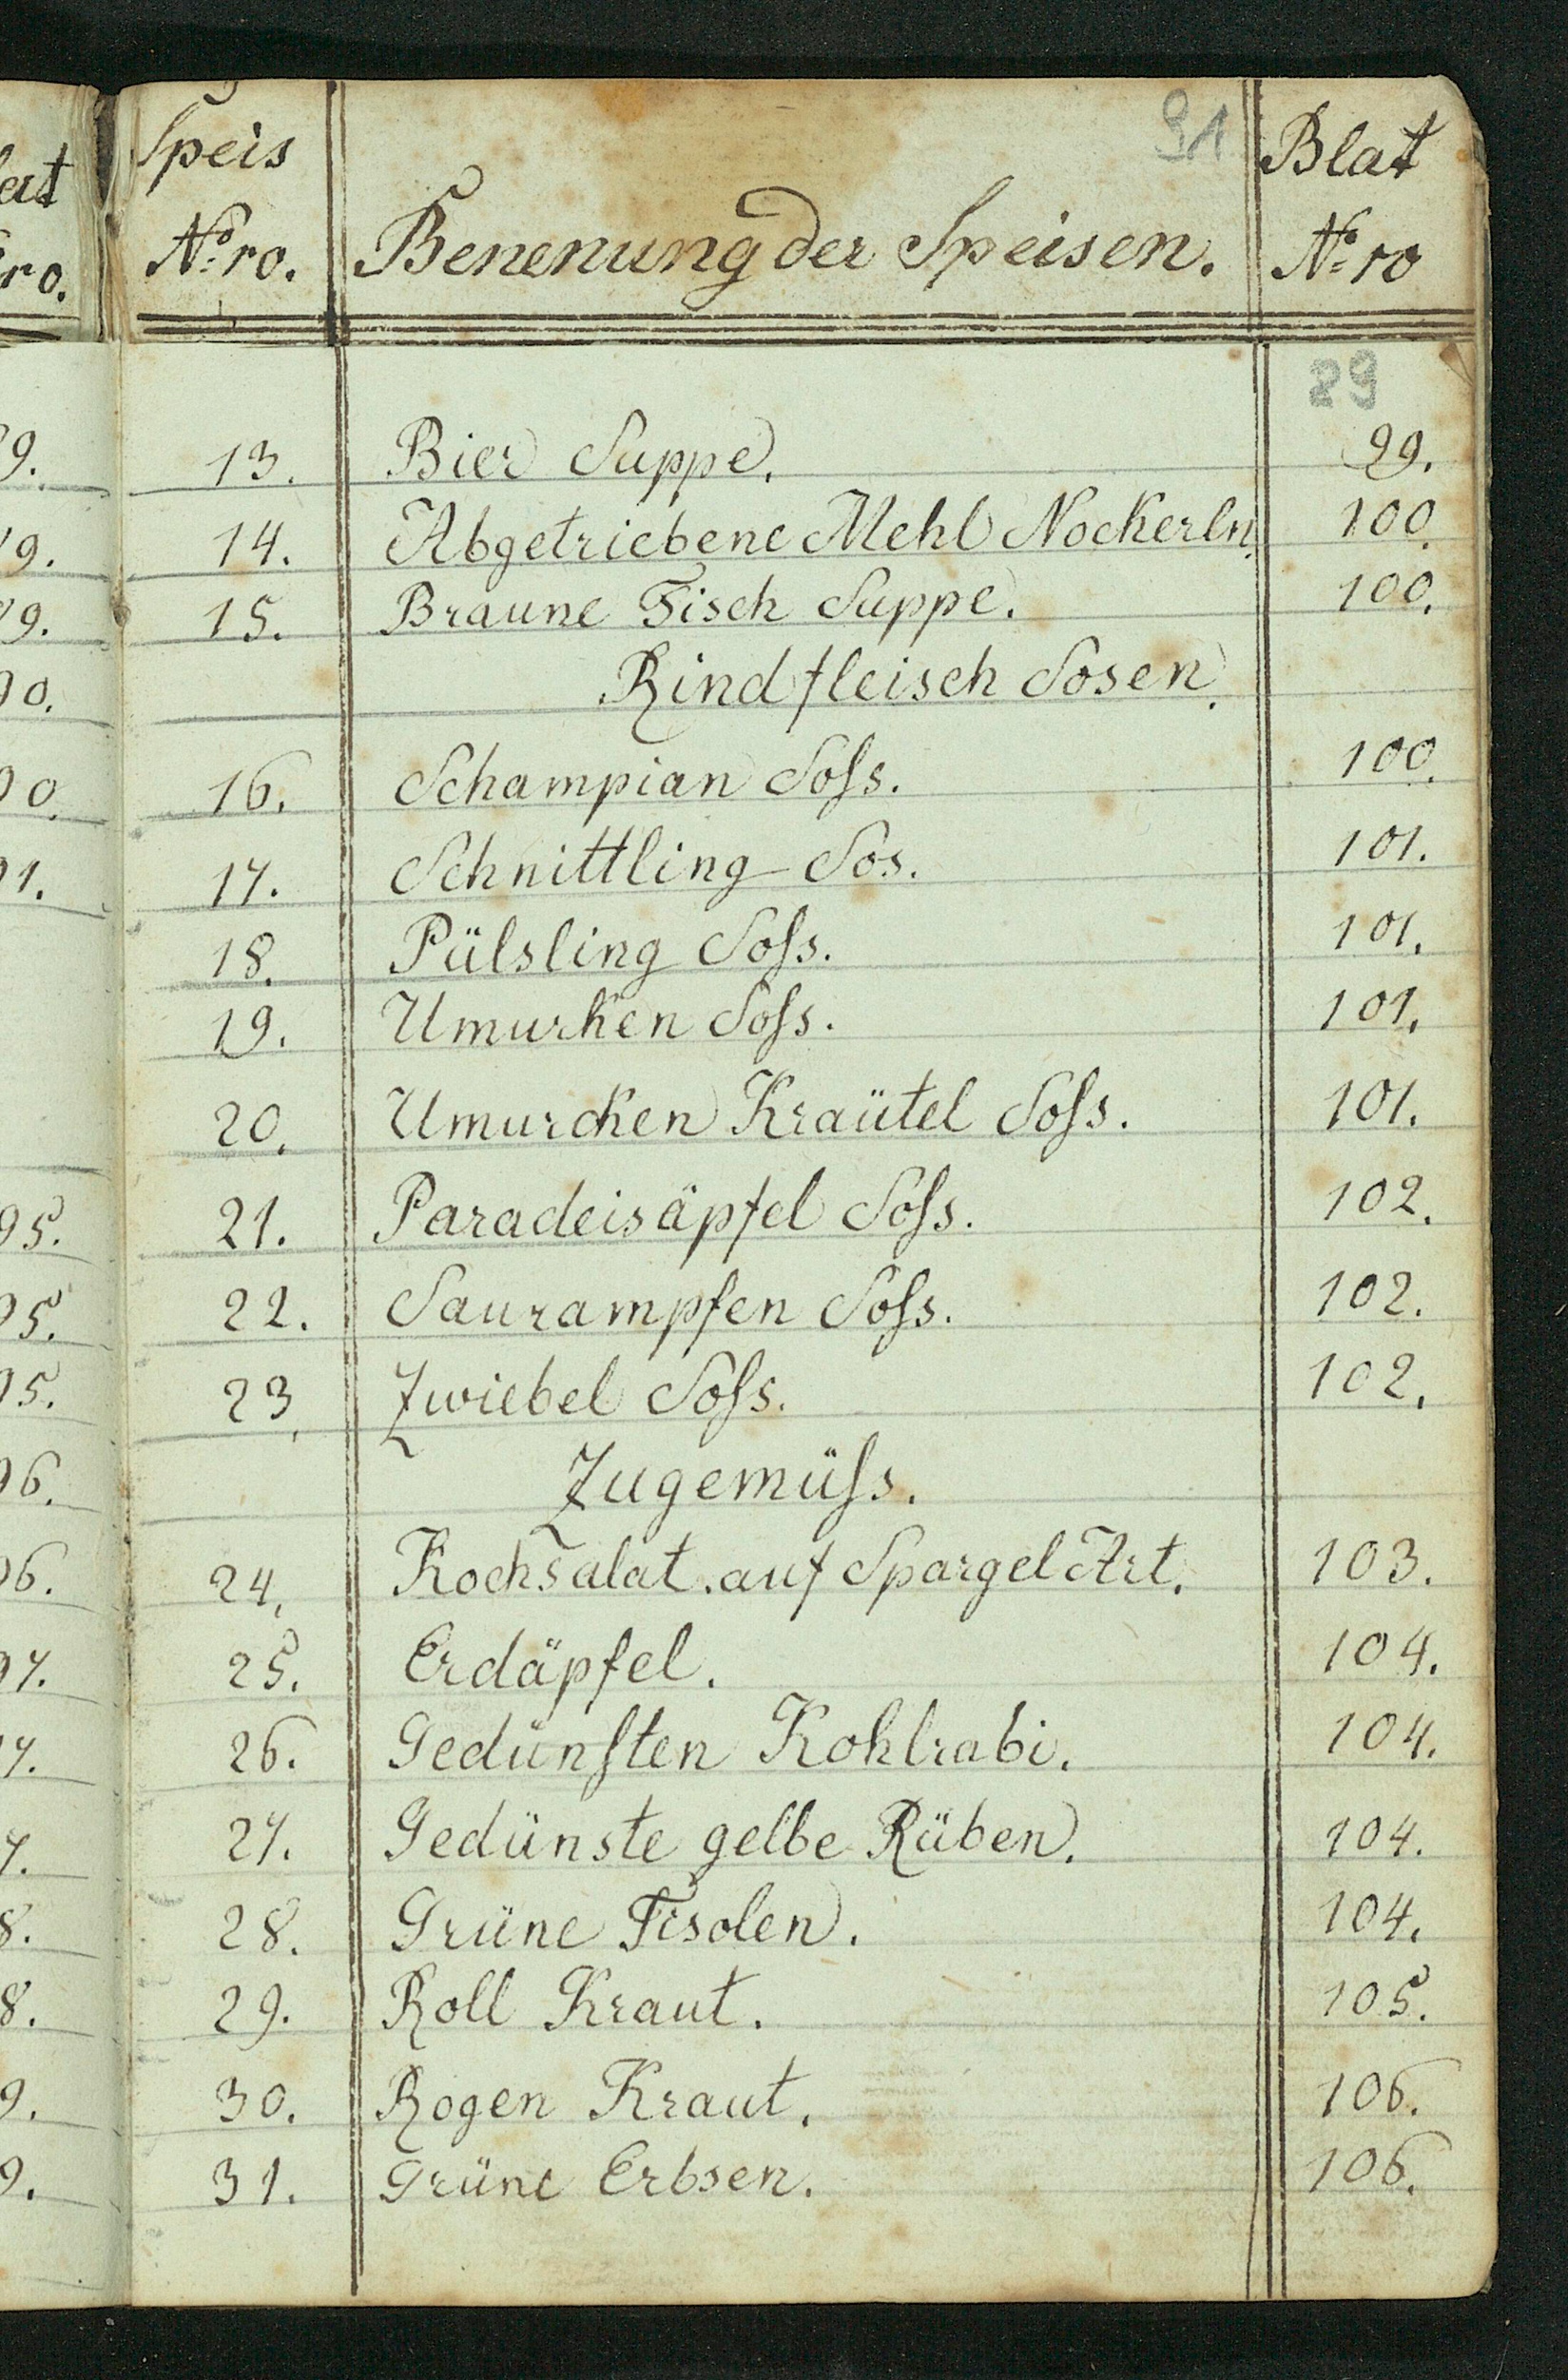 91
Speis Blat
Nro. Benenung der Speisen. Nro
29
13. Bier Suppe. 99.
14. Abgetriebene Mehl Nockerln. 100.
15. Braune Fisch Suppe. 100.
Rindfleisch Sosen.
16. Schampian Soſs. 100.
17. Schnittling Sos. 101.
18. Pülsling Soſs. 101.
19. Umurken Soſs. 101.
20. Umurcken Kraütel Soſs. 101.
21. Paradeisäpfel Soſs. 102.
22. Saurampfen Soſs. 102.
23. Zwiebel Soſs. 102.
Zugemüſs.
24. Kochsalat. auf Spargel Art. 103.
25. Erdäpfel. 104.
26. Gedünſten Kohlrabi. 104.
27. Gedünste gelbe Rüben. 104.
28. Grüne Fisolen. 104.
29. Roll Kraut. 105.
30. Rogen Kraut. 106.
31. Grüne Erbsen. 106.